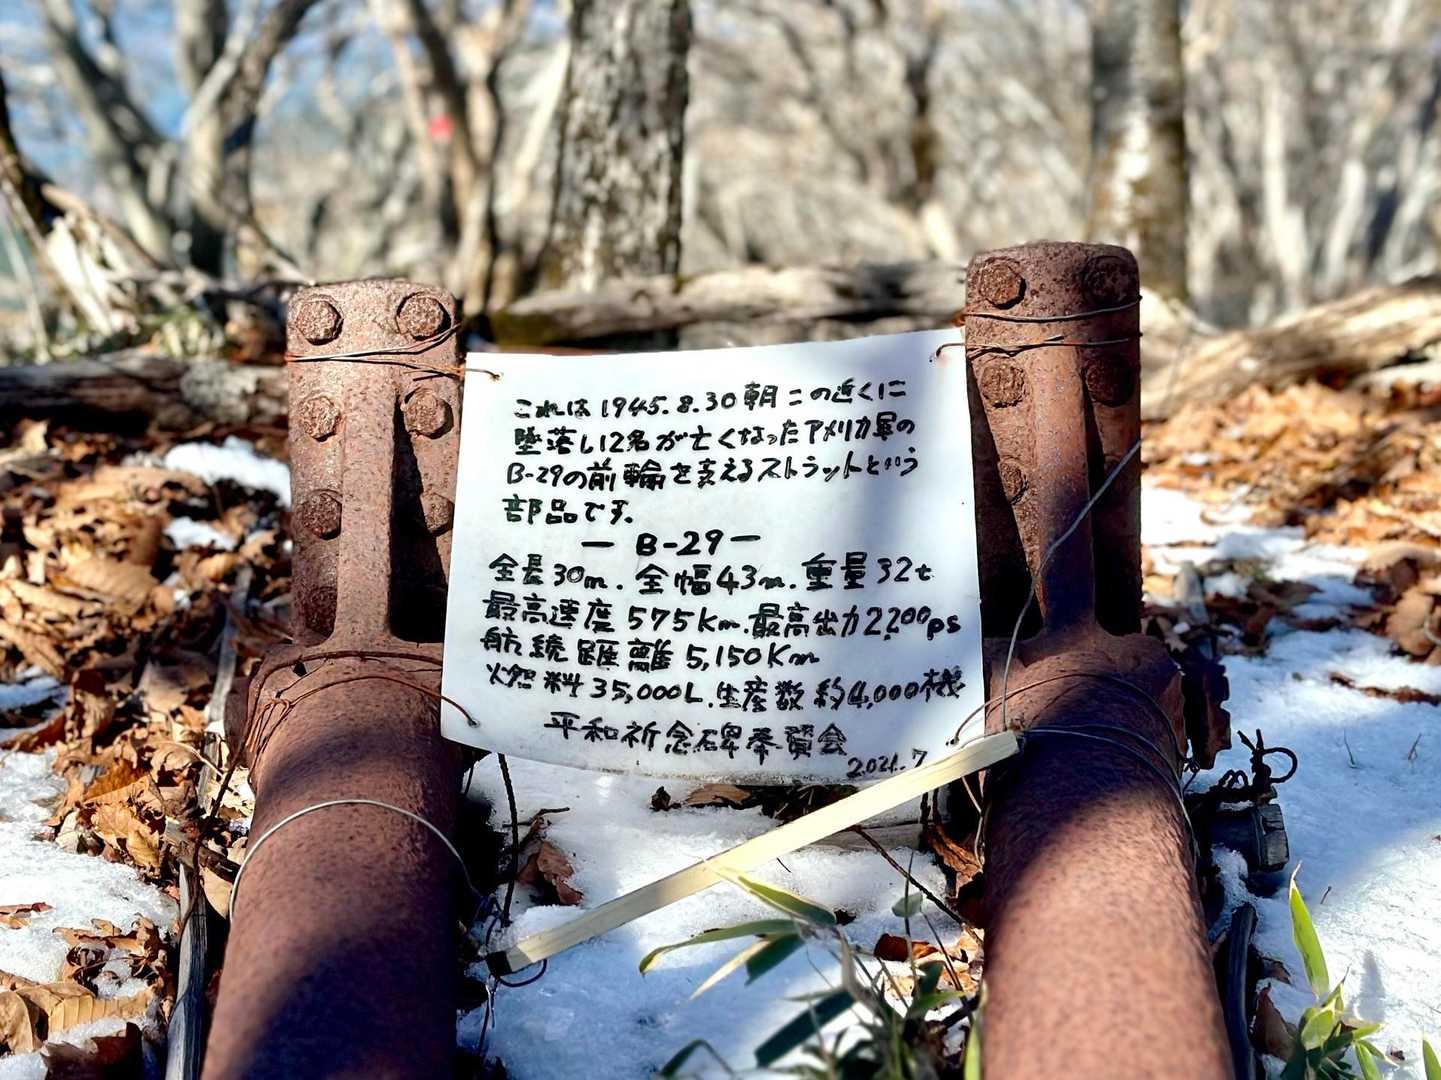 これは1945.8.30朝この近くに
墜落し12名が亡くなったアメリカ軍の
B-29の前輪を支えるストラットという
部品です。
ー B-29 ー
全長30m.全幅43m.重量32t
最高速度575Km.最高出力2,200ps
航続距離5,150Km
燃料35,000L.生産数約4,000機
平和祈念碑奉賛会
2021.7